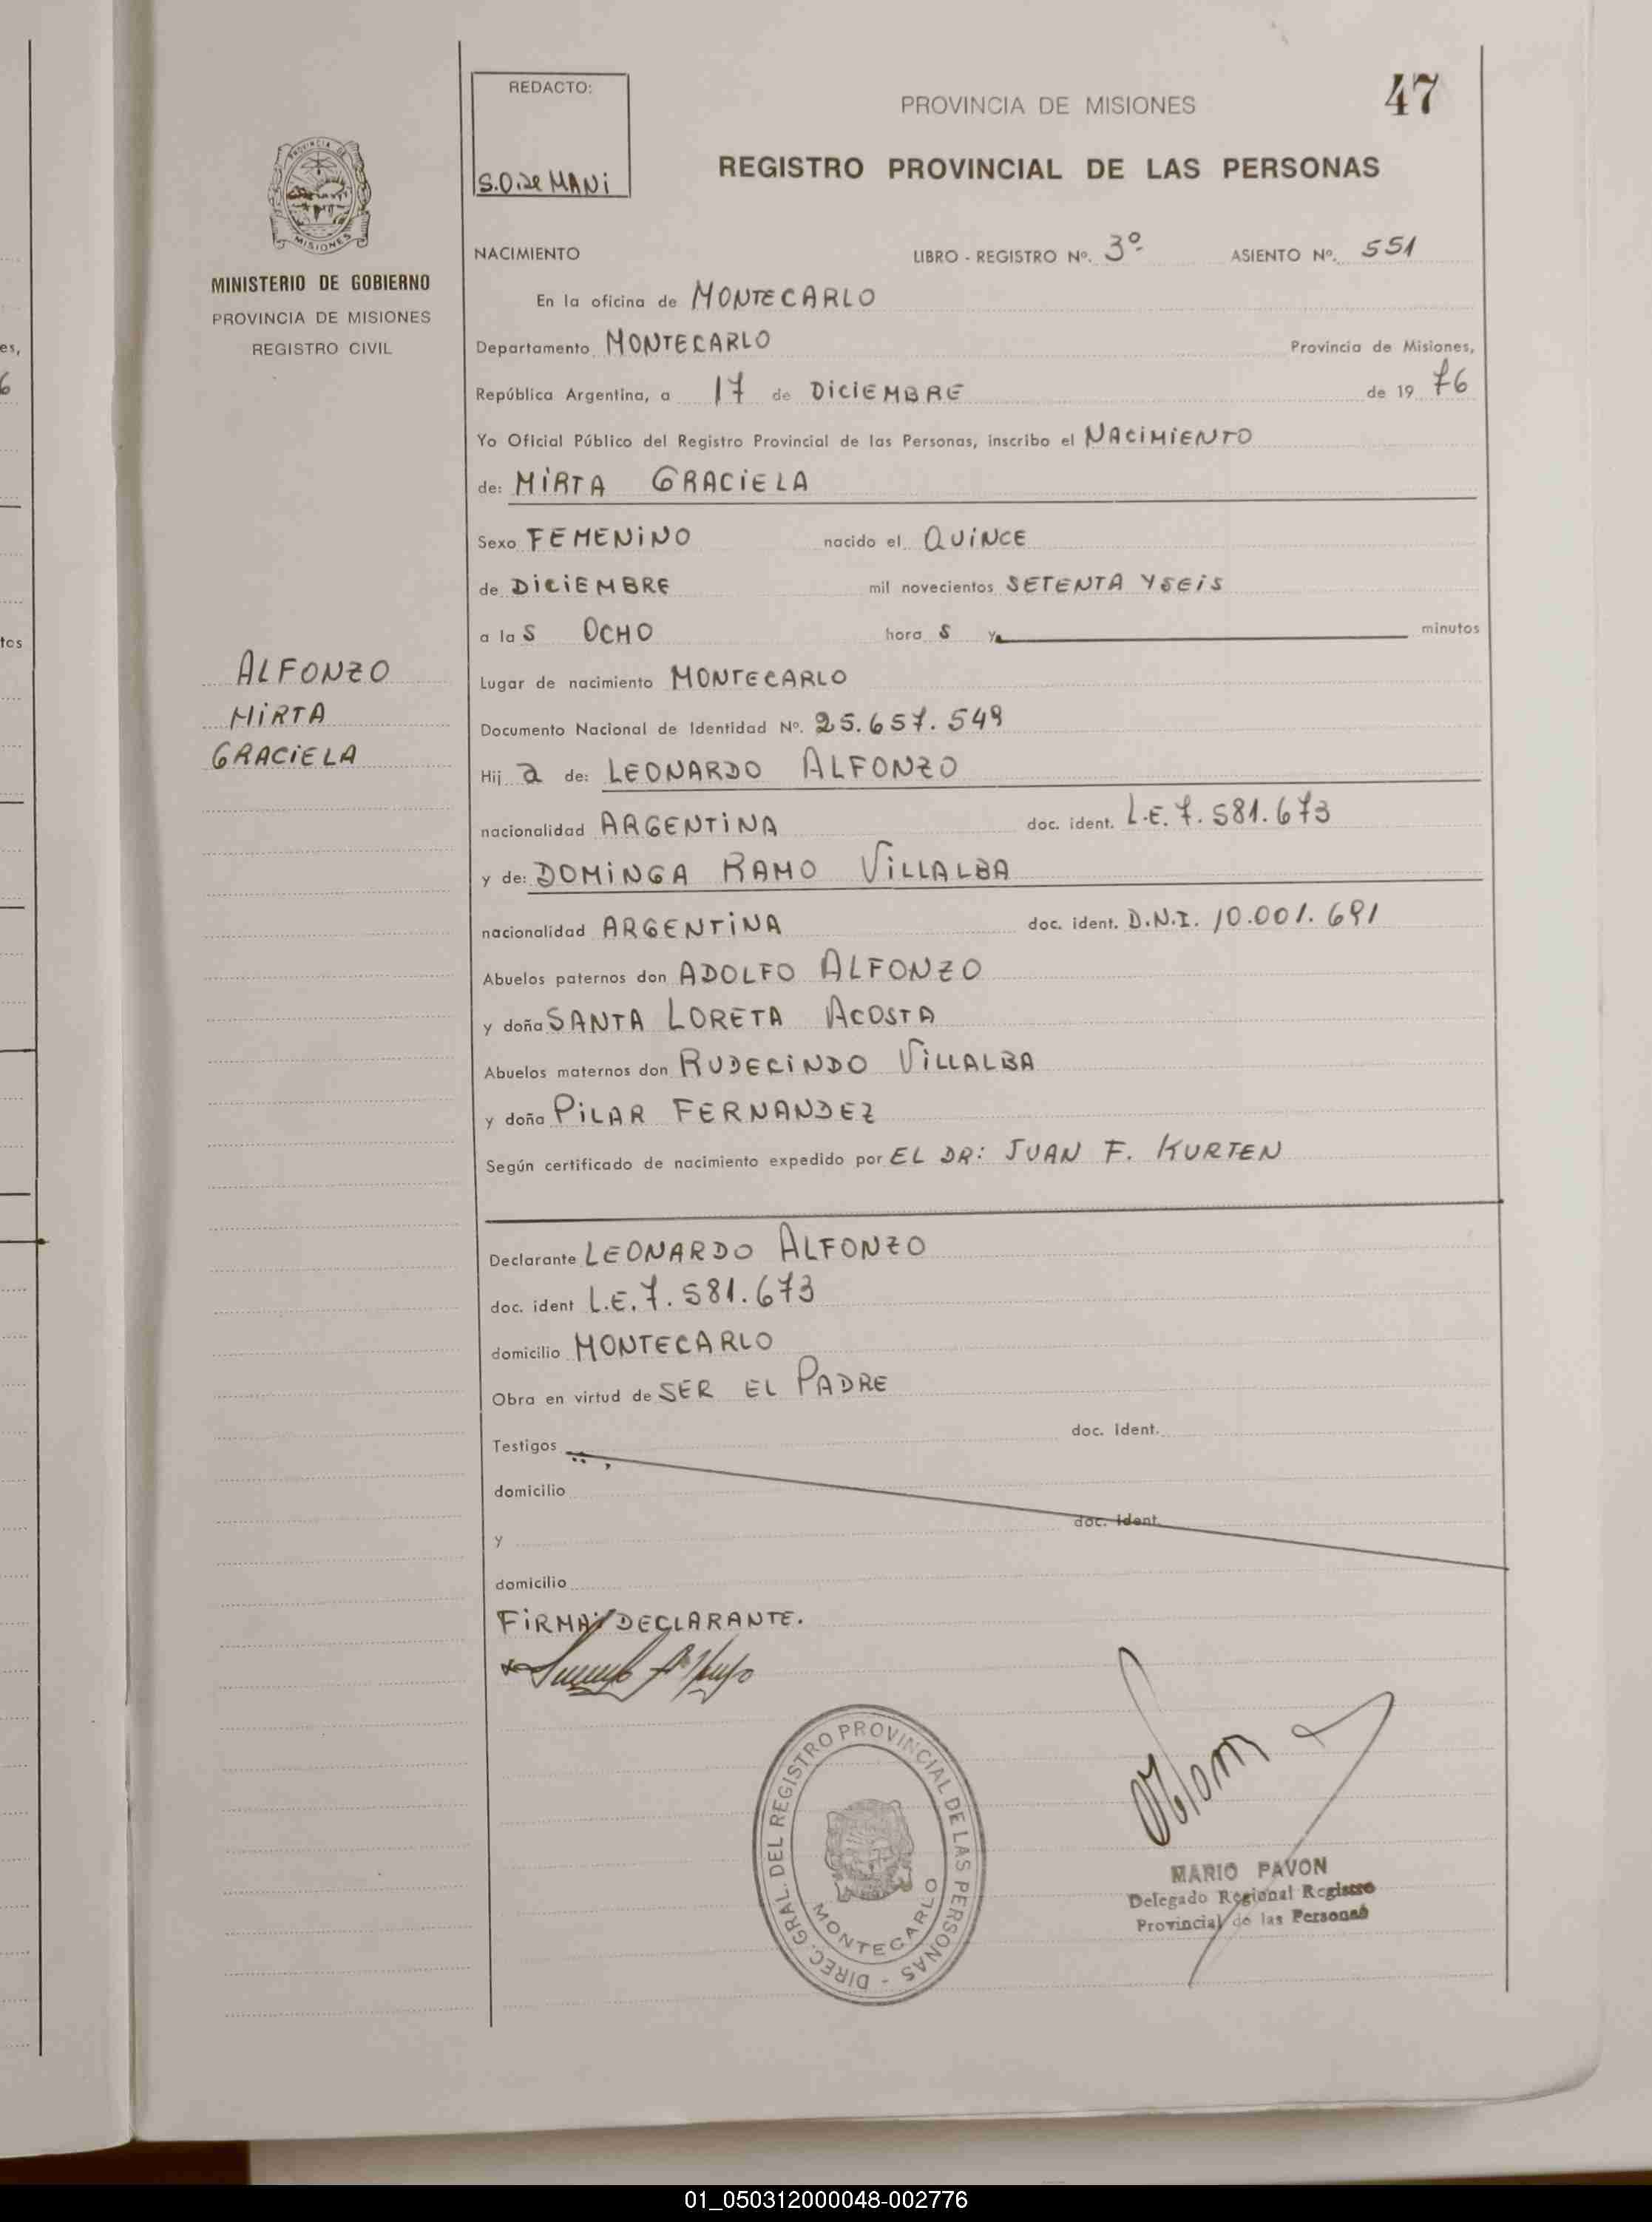 47
REDACTO:
S.O. de MANI
PROVINCIA DE MISIONES
REGISTRO PROVINCIAL DE LAS PERSONAS
PROVINCIA DE
MISIONES
MINISTERIO DE GOBIERNO
PROVINCIA DE MISIONES
REGISTRO CIVIL
NACIMIENTO LIBRO - REGISTRO Nº. 3º ASIENTO Nº. 551
En la oficina de MONTECARLO
Departamento MONTECARLO Provincia de Misiones,
República Argentina, a 17 de DICIEMBRE de 19 76
Yo Oficial Público del Registro Provincial de las Personas, inscribo el NACIMIENTO
de: MIRTA GRACIELA
Sexo FEMENINO nacido el QUINCE
de DICIEMBRE mil novecientos SETENTA Y SEIS
a la S OCHO hora S y minutos
ALFONZO
MIRTA
GRACIELA
Lugar de nacimiento MONTECARLO
Documento Nacional de Identidad Nº. 25.657.549
Hij a de: LEONARDO ALFONZO
nacionalidad ARGENTINA doc. ident. L.E. 7.581.673
y de: DOMINGA RAMO VILLALBA
nacionalidad ARGENTINA doc. ident. D.N.I. 10.001.691
Abuelos paternos don ADOLFO ALFONZO
y doña SANTA LORETA ACOSTA
Abuelos maternos don RUDECINDO VILLALBA
y doña PILAR FERNANDEZ
Según certificado de nacimiento expedido por EL DR: JUAN F. KURTEN
Declarante LEONARDO ALFONZO
doc. ident L.E. 7.581.673
domicilio MONTECARLO
Obra en virtud de SER EL PADRE
Testigos doc. Ident.
domicilio
y doc. Ident.
domicilio
FIRMA DECLARANTE.
DIREC. GRAL. DEL REGISTRO PROVINCIAL DE LAS PERSONAS -
MONTECARLO
MARIO PAVON
Delegado Regional Registro
Provincial de las Personas
es,
6
tos
01_050312000048-002776